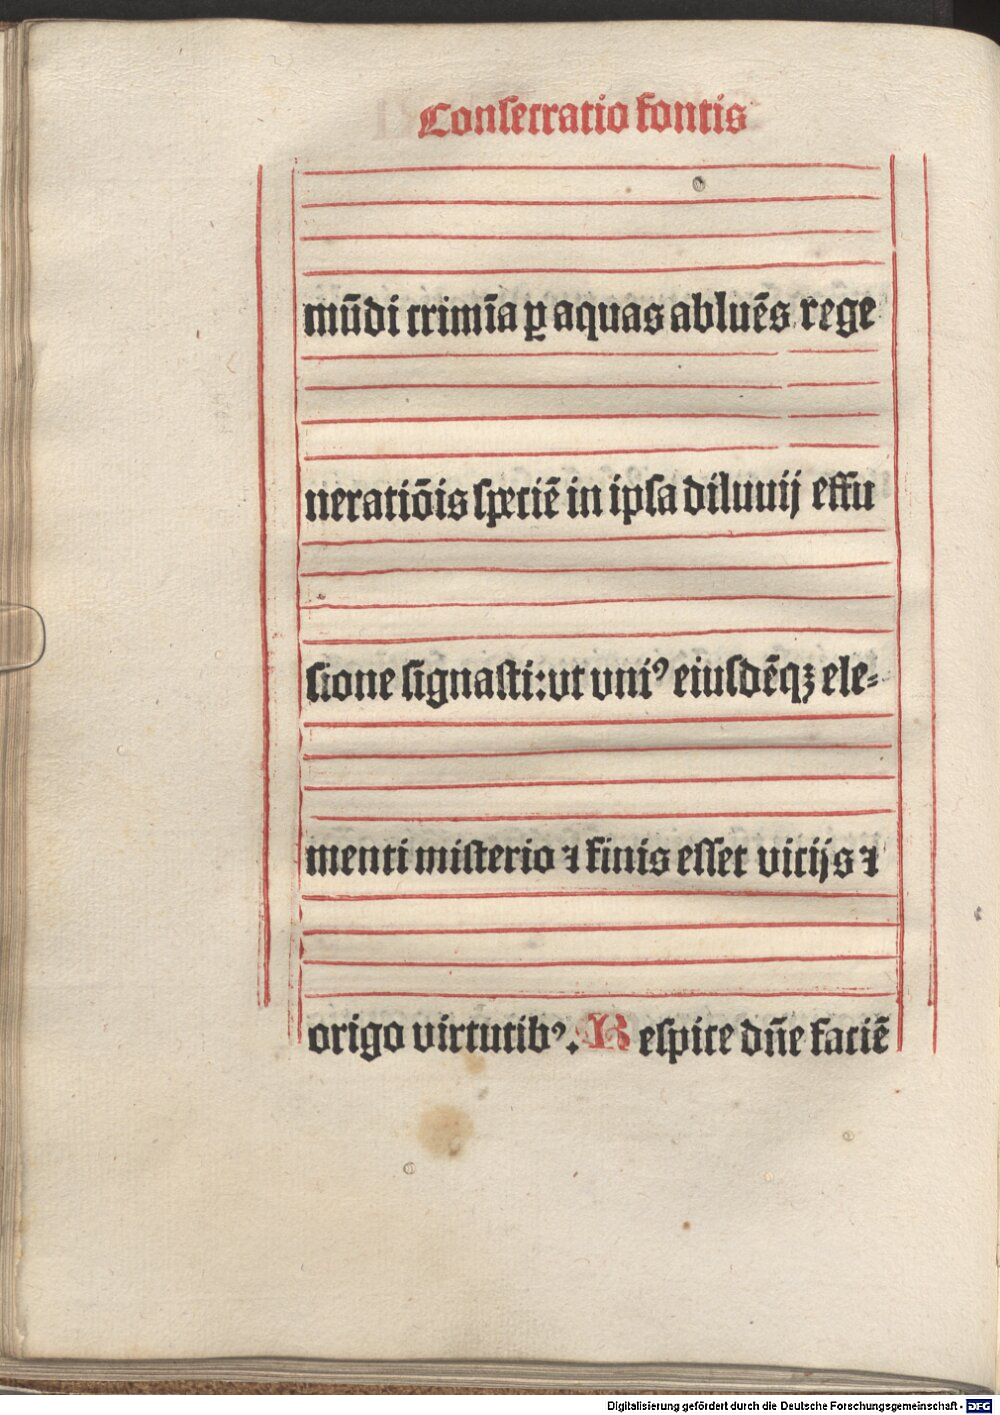 Consecratio fontis
mūdi crimīa ꝑ aquas abluēs rege
neratiōis speciē in ipsa diluuij effu
sione signasti: vt vniꝰ eiusdēqꝫ ele⸗
menti misterio ⁊ finis esset vicijs ⁊
origo virtutibꝰ. Respice dn̄e faciē
Digitalisierung gefördert durch die Deutsche Forschungsgemeinschaft - DFG